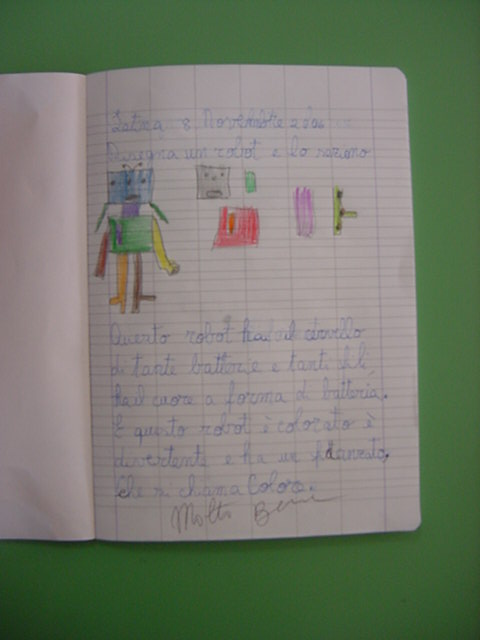 Latina 8 Novembre 2006
Disegna un robot e lo
Questo robot ha il cervello
di tante batterie e tanti fili,
ha il cuore a forma di batteria.
E questo robot è colorato è
divertente e ha un
che si chiama Colora.
Molto Bene